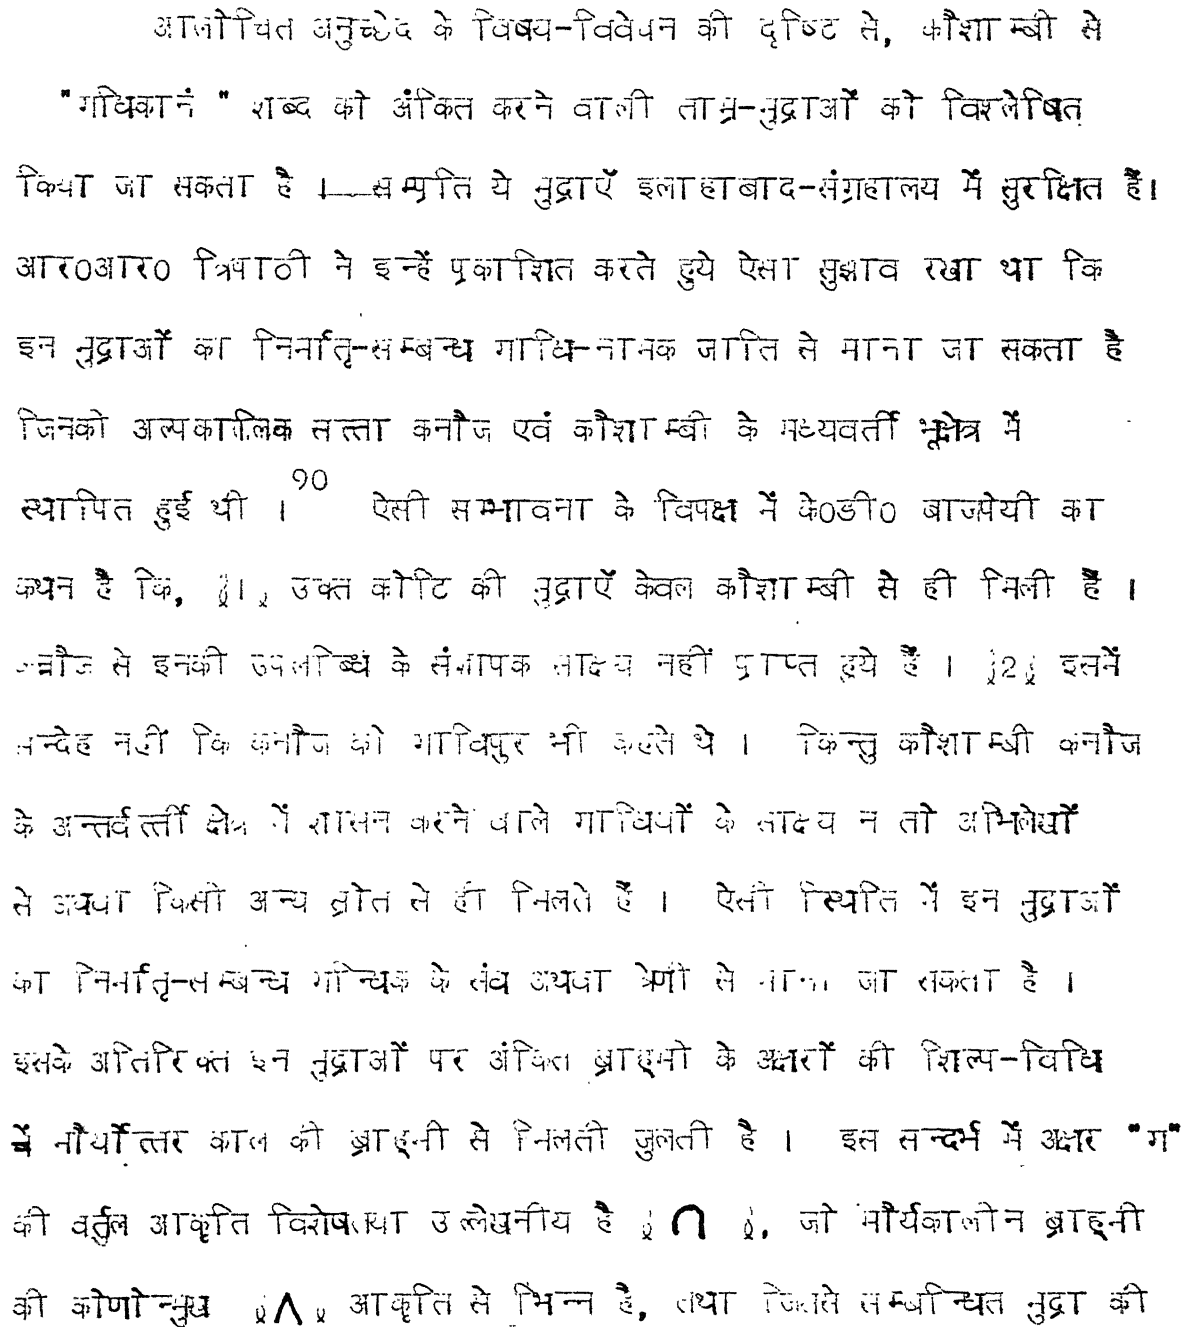 आलोचित अनुच्छेद के विषय-विवेचन की दृष्टि से, कौशाम्बी से
"गधिकानं " शब्द को अंकित करने वाली ताम्र-मुद्राओं को विश्लेषित
किया जा सकता है । सम्प्रति ये मुद्राएँ इलाहाबाद-संग्रहालय में सुरक्षित हैं।
आर0आर0 त्रिपाठी ने इन्हें प्रकाशित करते हुये ऐसा सुझाव रखा था कि
इन मुद्राओं का निर्मातृ-सम्बन्ध गाधि-नामक जाति से माना जा सकता है
जिनको अल्पकालिक सत्ता कनौज एवं कौशाम्बी के मध्यवर्ती भूक्षेत्र में
स्थापित हुई थी ।90 ऐसी सम्भावना के विपक्ष में के0डी0 बाजपेयी का
कथन है कि, ॥1॥ उक्त कोटि की मुद्राएँ केवल कौशाम्बी से ही मिली हैं ।
कन्नौज से इनकी उपलब्धि के संज्ञापक साक्ष्य नहीं प्राप्त हुये हैं । ॥2॥ इसमें
सन्देह नहीं कि कनौज को गाधिपुर भी कहते थे । किन्तु कौशाम्बी कनौज
के अन्तर्वर्त्ती क्षेत्र में शासन करने वाले गाधियों के साक्ष्य न तो अभिलेखों
से अथवा किसी अन्य स्रोत से ही मिलते हैं । ऐसी स्थिति में इन मुद्राओं
का निर्मातृ-सम्बन्ध गन्धिक के संघ अथवा श्रेणी से माना जा सकता है ।
इसके अतिरिक्त इन मुद्राओं पर अंकित ब्राह्मी के अक्षरों की शिल्प-विधि
में मौर्योत्तर काल की ब्राह्मी से मिलती जुलती है । इस सन्दर्भ में अक्षर "ग"
की वर्तुल आकृति विशेषतया उल्लेखनीय है ॥ ∩ ॥, जो मौर्यकालीन ब्राह्मी
की कोणोन्मुख ॥Λ॥ आकृति से भिन्न है, तथा जिससे सम्बन्धित मुद्रा की